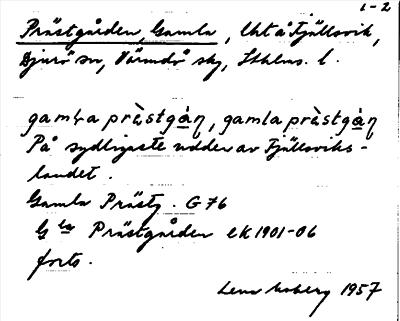 1-2
Prästgården, Gamla, lht å Fjällsvik,
Djurö sn, Värmdö skg, Sthlms. l.
gamla prèstgàṇ, gamla prèstgàṇ
På sydligaste udden av Fjällsviks-
landet.
Gamla Prästg. G 76
G la Prästgården ek 1901-06
forts.
Lena Moberg 1957